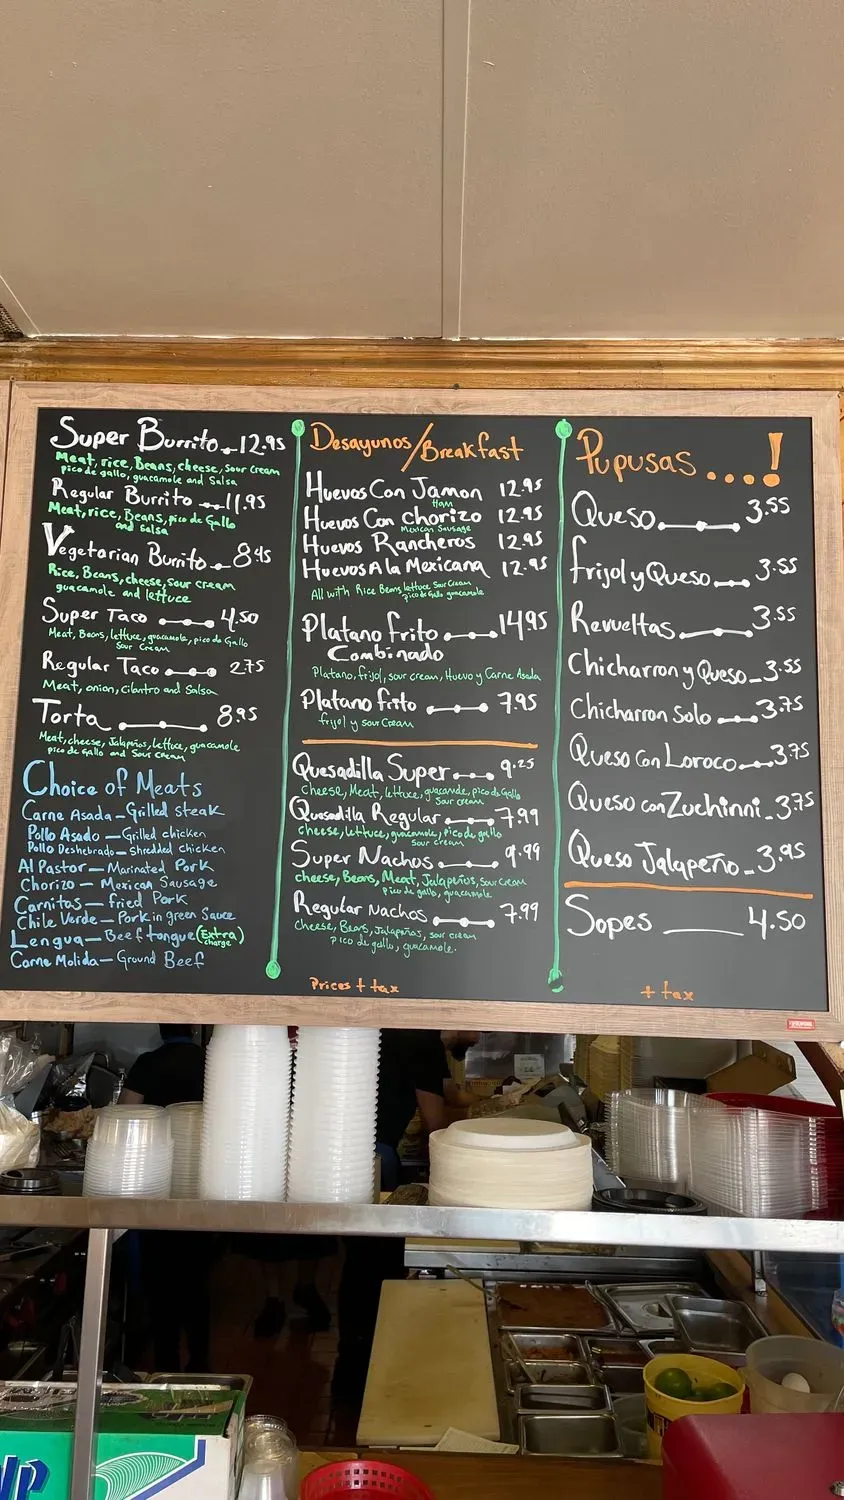 Super Burrito 12.95
Meat, rice, Beans, cheese, sour cream
pico de gallo, guacamole and Salsa
Regular Burrito 11.95
Meat, rice, Beans, pico de Gallo
and Salsa
Vegetarian Burrito 8.45
Rice, Beans, cheese, sour cream
guacamole and lettuce
Super Taco 4.50
Meat, Beans, lettuce, guacamole, pico de Gallo
Sour Cream
Regular Taco 2.75
Meat, onion, cilantro and Salsa
Torta 8.95
Meat, cheese, Jalapeños, lettuce, guacamole
pico de Gallo and Sour Cream
Choice of Meats
Carne Asada — Grilled steak
Pollo Asado — Grilled chicken
Pollo Deshebrado — shredded chicken
Al Pastor — Marinated Pork
Chorizo — Mexican Sausage
Carnitas — fried Pork
Chile Verde — Pork in green Sauce
Lengua — Beef tongue (Extra charge)
Carne Molida — Ground Beef
Desayunos/Breakfast
Huevos Con Jamon 12.95
Ham
Huevos Con chorizo 12.95
Mexican Sausage
Huevos Rancheros 12.95
Huevos A la Mexicana 12.95
All with Rice Beans lettuce Sour Cream
pico de Gallo guacamole
Platano frito 14.95
Combinado
Platano, frijol, sour cream, Huevo y Carne Asada
Platano frito 7.95
frijol y sour Cream
Quesadilla Super 9.25
Cheese, Meat, lettuce, guacamole, pico de Gallo
Sour cream
Quesadilla Regular 7.99
cheese, lettuce, guacamole, pico de gallo
sour cream
Super Nachos 9.99
cheese, Beans, Meat, Jalapeños, sour cream
pico de gallo, guacamole
Regular Nachos 7.99
Cheese, Beans, Jalapeños, sour cream
pico de gallo, guacamole.
Prices + tax
Pupusas....!
Queso 3.55
frijol y Queso 3.55
Revueltas 3.55
Chicharron y Queso 3.55
Chicharron Solo 3.75
Queso Con Loroco 3.75
Queso con Zuchinni 3.75
Queso Jalapeño 3.95
Sopes 4.50
+ tax